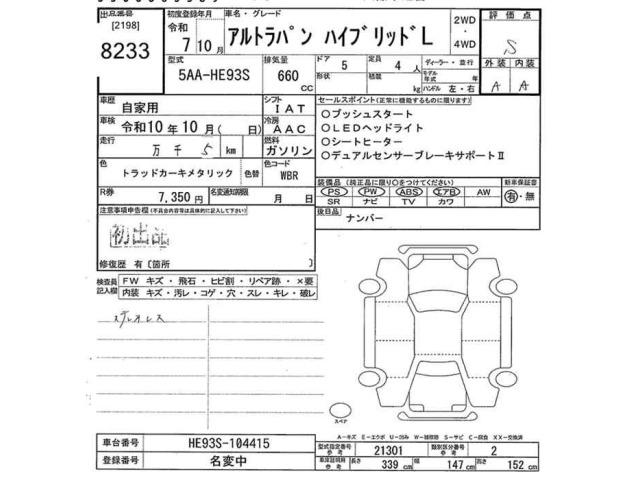 出品番号 初度登録年月 車名・グレード 2WD 評価点
[2198] 令和 アルトラパン ハイブリッドL ・ S
8233 7 10月 4WD 外装 内装
型式 排気量 ドア 5 定員 4人 ディーラー・並行 A A
5AA-HE93S 660 CC 形状 積載 kg モデル年式 年 ハンドル 左・右
車歴 自家用 シフト IAT セールスポイント(正常に機能するものに限ります)
車検 令和10年10月( 日) 冷房 AAC ○プッシュスタート
走行 万 千 5 km 燃料 ガソリン ○LEDヘッドライト
色 トラッドカーキメタリック 色替 色コード WBR ○シートヒーター
○デュアルセンサーブレーキサポートⅡ
R券 7,350円 名変通知期限 月 日 装備品(純正品に限り○をつけてください) 新車保証書
PS PW ABS エアB AW 有・無
SR ナビ TV カワ
注意事項申告欄(不具合内容等は具体的に記入して下さい) 後日品 ナンバー
初出品
修復歴 有〔箇所 〕
検査員記入欄 FW キズ・飛石・ヒビ割・リペア跡・×要
内装 キズ・汚レ・コゲ・穴・スレ・キレ・破レ
ステレオレス
スペア
A-キズ E-エクボ U-凹み W-補修跡 S-サビ C-腐食 XX-交換済
車台番号 HE93S-104415 型式指定番号 参考 21301 類別区分番号 参考 2
登録番号 名変中 車車証明用 参考 長さ 339 cm 幅 147 cm 高さ 152 cm